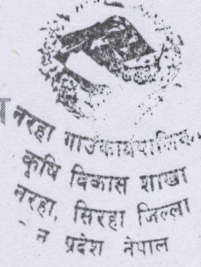 नरहा गाउँकार्यपालिका,
कृषि विकास शाखा
नरहा, सिरहा जिल्ला
प्रदेश नेपाल